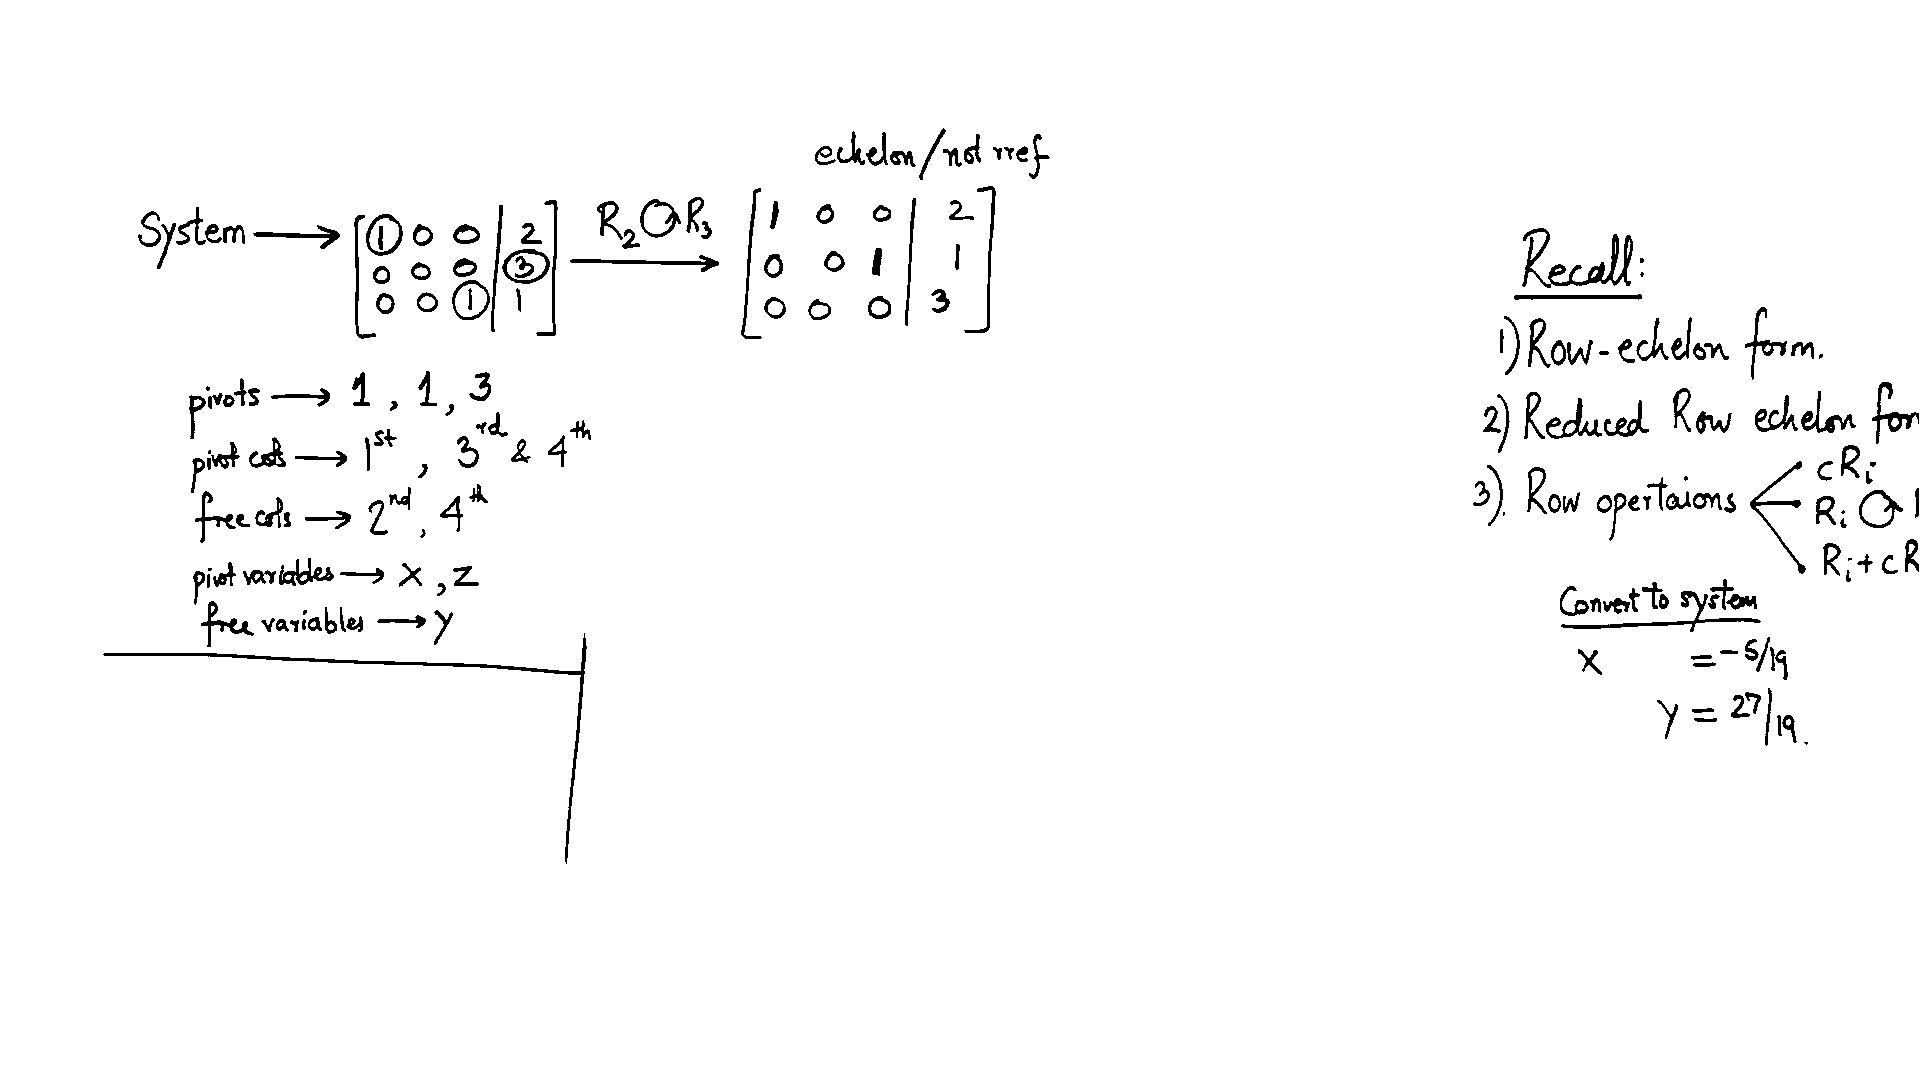 echelon/not rref
System → [ 1 0 0 | 2 ] R₂ ↻ R₃ → [ 1 0 0 | 2 ]
[ 0 0 0 | 3 ] [ 0 0 1 | 1 ]
[ 0 0 1 | 1 ] [ 0 0 0 | 3 ]
pivots → 1 , 1 , 3
pivot cols → 1st , 3rd & 4th
free cols → 2nd , 4th
pivot variables → x , z
free variables → y
Recall:
1) Row-echelon form.
2) Reduced Row echelon for
3). Row opertaions
cRᵢ
Rᵢ ↻
Rᵢ + cR
Convert to system
x = -5/19
y = 27/19.